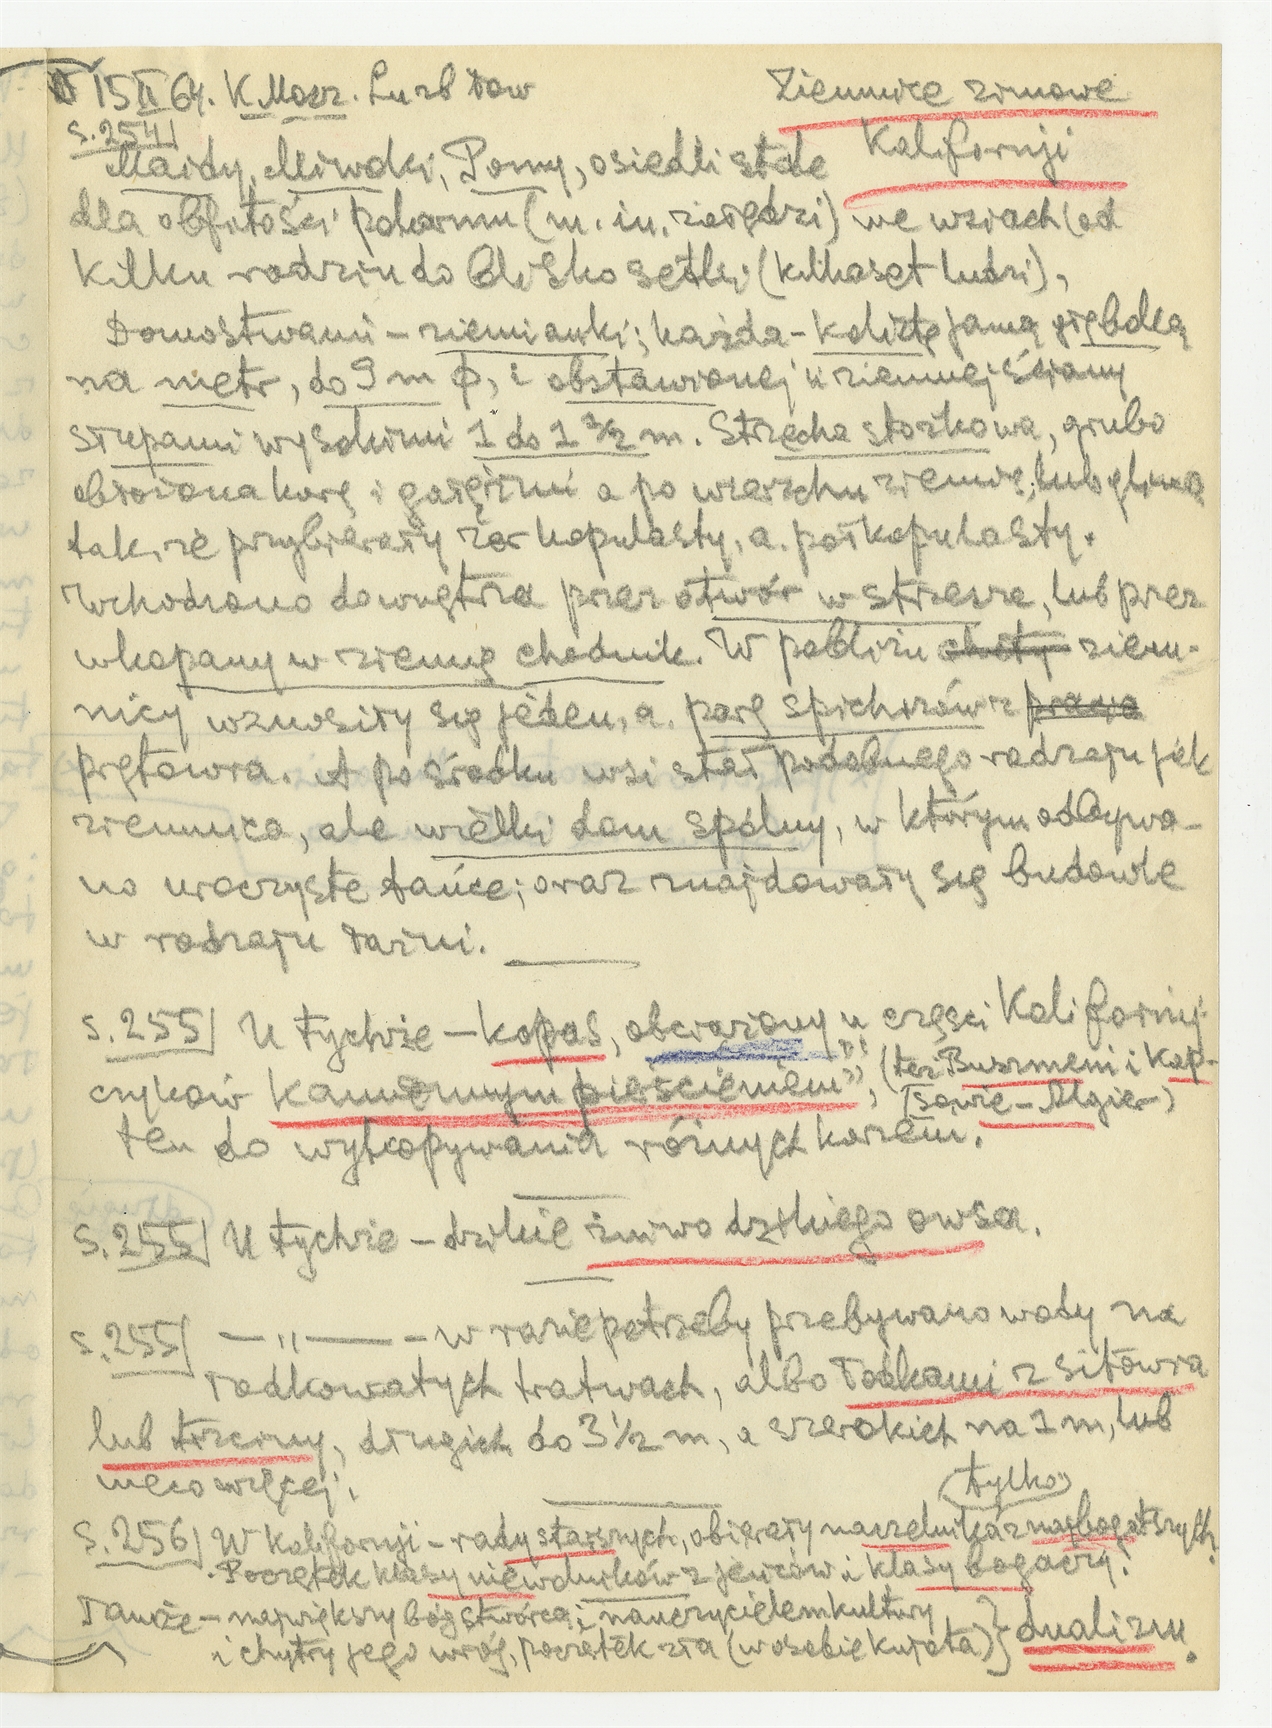 15 II 64. K. Mosz. Lu zb Dow
Ziemnice zimowe
Kalifornji
s. 254/
Maidy, Miwoki, Pomy, osiedli stale
dla obfitości pokarmu (m. in. żołędzi) we wsiach (od
kilku rodzin do blisko setki (kilkaset ludzi),
Domostwami – ziemianki; każda – kolistą jamą głęboką
na metr, do 9 m φ, i obstawionej u ziemnej ściany
słupami wysokimi 1 do 1 1/2 m. Strzecha stożkowa, grubo
obłożona korą i gałęźmi a po wierzchu ziemią, lub gliną
tak, że przybierały kopulasty, a. półkopulasty.
Wchodzono do wnętrza przez otwór w strzesze, lub przez
wkopany w ziemię chodnik. W pobliżu chaty ziem-
nicy wznosiły się jeden, a. parę spichrzów z
prętowia. A po środku wsi stał podobnego rodzaju jak
ziemnica, ale wielki dom spólny, w którym odbywa-
no uroczyste tańce; oraz znajdowały się budowle
w rodzaju łaźni.
s. 255/ U tychże – kopaś, obciążony u części Kaliforni-
czyków "kamiennym pierścieniem", (też Buszmeni i Kap-
Tsowie – Algier)
ten do wykopywania różnych korzeni.
s. 255/ U tychże – dzikie żniwo dzikiego owsa.
s. 255/ — „ — – w razie potrzeby przebywano wody na
łodkowatych tratwach, albo łódkami z sitowia
lub trzciny, długich do 3 1/2 m, a szerokich na 1 m, lub
nieco więcej.
(tylko)
s. 256/ W Kalifornji – rady starszych, obierały naczelnika z najbogatszych.
Początek klasy niewolników z jeńców i klasy bogaczy!
Tamże – największy bóg stwórca i nauczycielem kultury
i chytry jego wróg, początek zła (w osobie kujota) } dualizm.